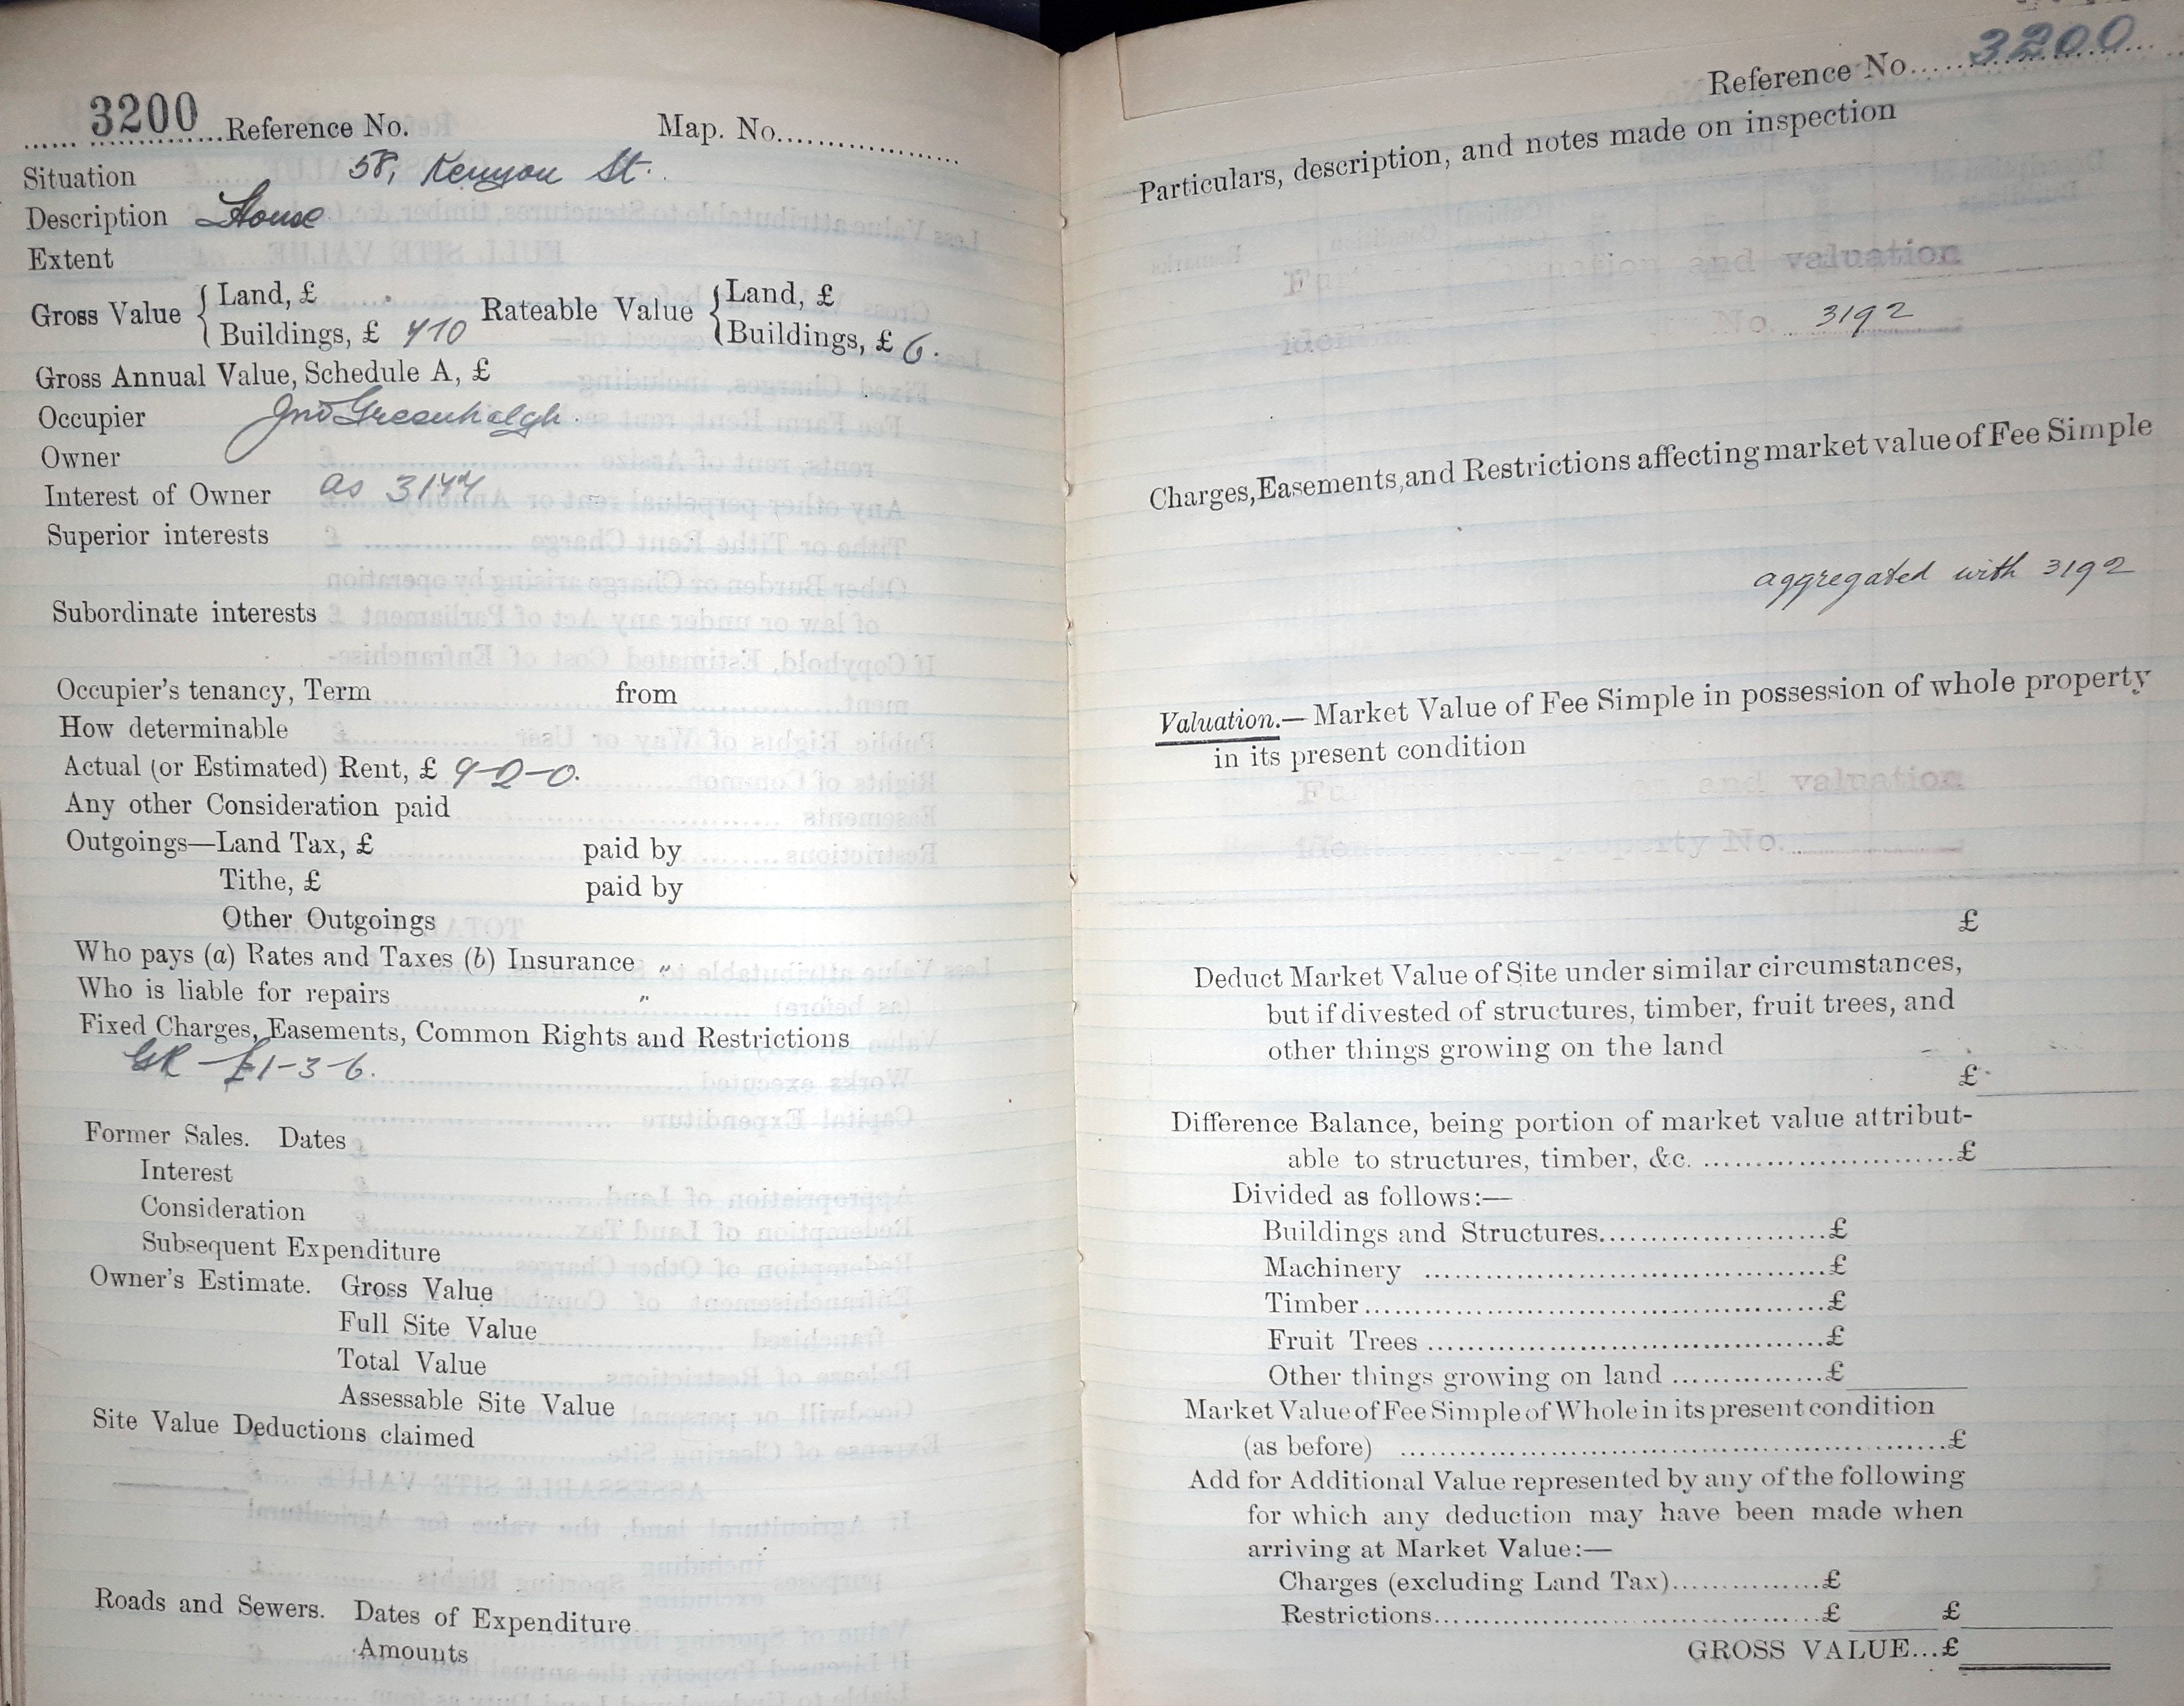 3200 Reference No. Map. No.
Situation 58, Kenyon St.
Description House
Extent
Gross Value { Land, £ Rateable Value { Land, £
Buildings, £ 7/10 Buildings, £ 6.
Gross Annual Value, Schedule A, £
Occupier Jno Greenhalgh.
Owner
Interest of Owner as 3144
Superior interests
Subordinate interests
Occupier's tenancy, Term from
How determinable
Actual (or Estimated) Rent, £ 9-2-0.
Any other Consideration paid
Outgoings—Land Tax, £ paid by
Tithe, £ paid by
Other Outgoings
Who pays (a) Rates and Taxes (b) Insurance "
Who is liable for repairs "
Fixed Charges, Easements, Common Rights and Restrictions
GR - £1-3-6.
Former Sales. Dates
Interest
Consideration
Subsequent Expenditure
Owner's Estimate. Gross Value
Full Site Value
Total Value
Assessable Site Value
Site Value Deductions claimed
Roads and Sewers. Dates of Expenditure
Amounts
Reference No. 3200
Particulars, description, and notes made on inspection
and valuation
No. 3192
Charges, Easements, and Restrictions affecting market value of Fee Simple
aggregated with 3192
Valuation.—Market Value of Fee Simple in possession of whole property
in its present condition
and valuation
property No.
£
Deduct Market Value of Site under similar circumstances,
but if divested of structures, timber, fruit trees, and
other things growing on the land
£
Difference Balance, being portion of market value attribut-
able to structures, timber, &c. £
Divided as follows:—
Buildings and Structures £
Machinery £
Timber £
Fruit Trees £
Other things growing on land £
Market Value of Fee Simple of Whole in its present condition
(as before) £
Add for Additional Value represented by any of the following
for which any deduction may have been made when
arriving at Market Value:—
Charges (excluding Land Tax) £
Restrictions £ £
GROSS VALUE... £